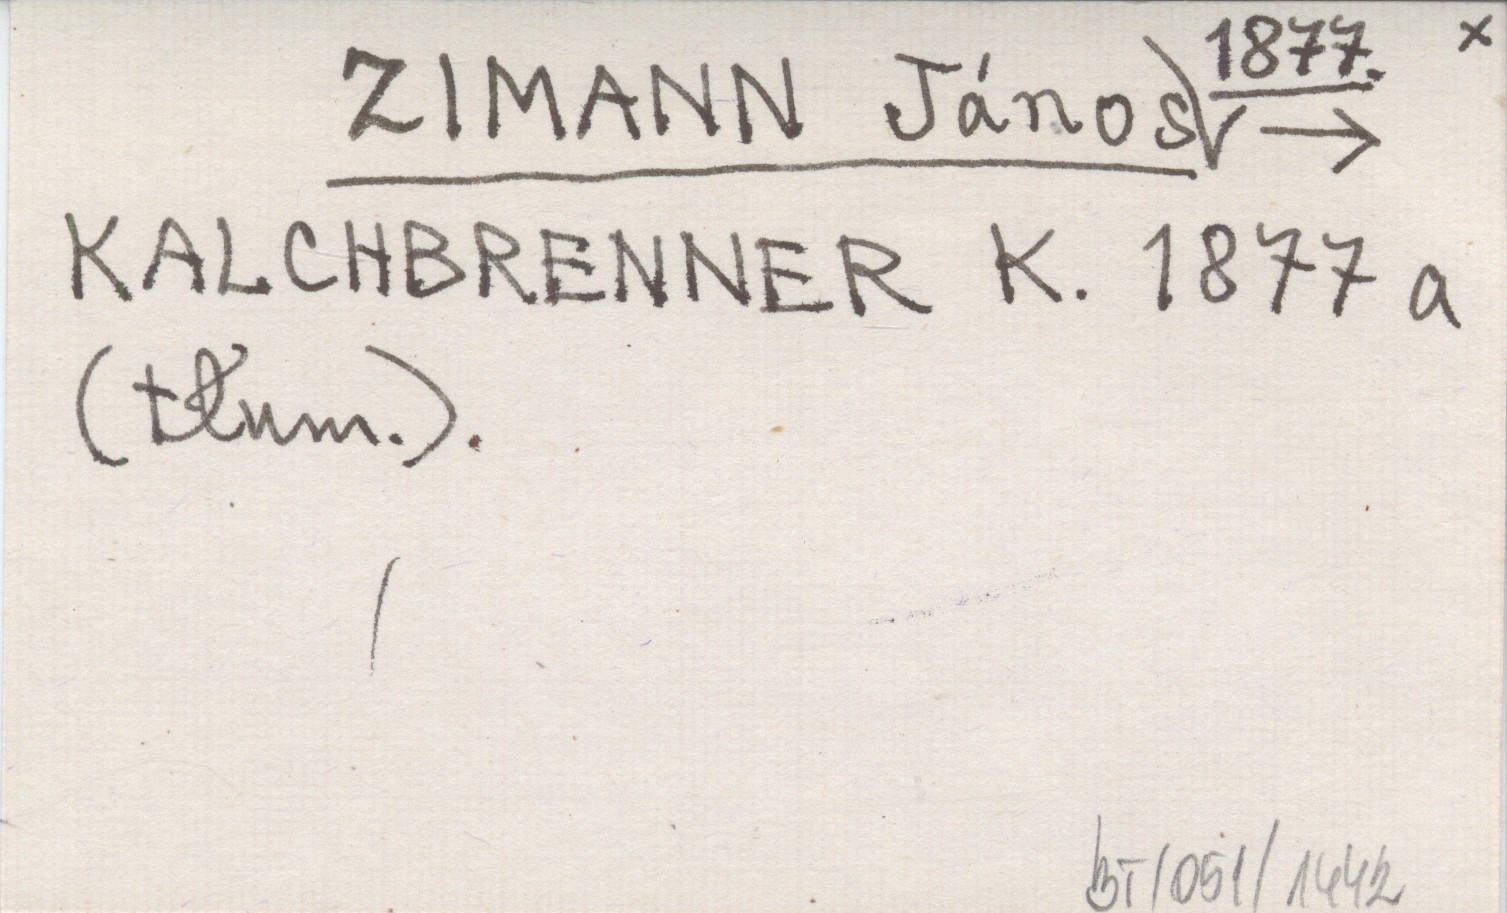 ZIMANN János 1877. x
→
KALCHBRENNER K. 1877 a
(tłum.).
BT/051/1442